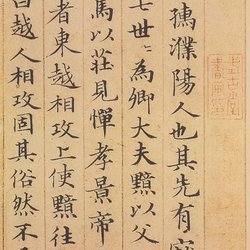 孺濮陽人也其先有
七世〻為卿大夫黯以父
馬以莊見憚孝景帝
者東越相攻上使黯往
曰越人相攻固其俗然不